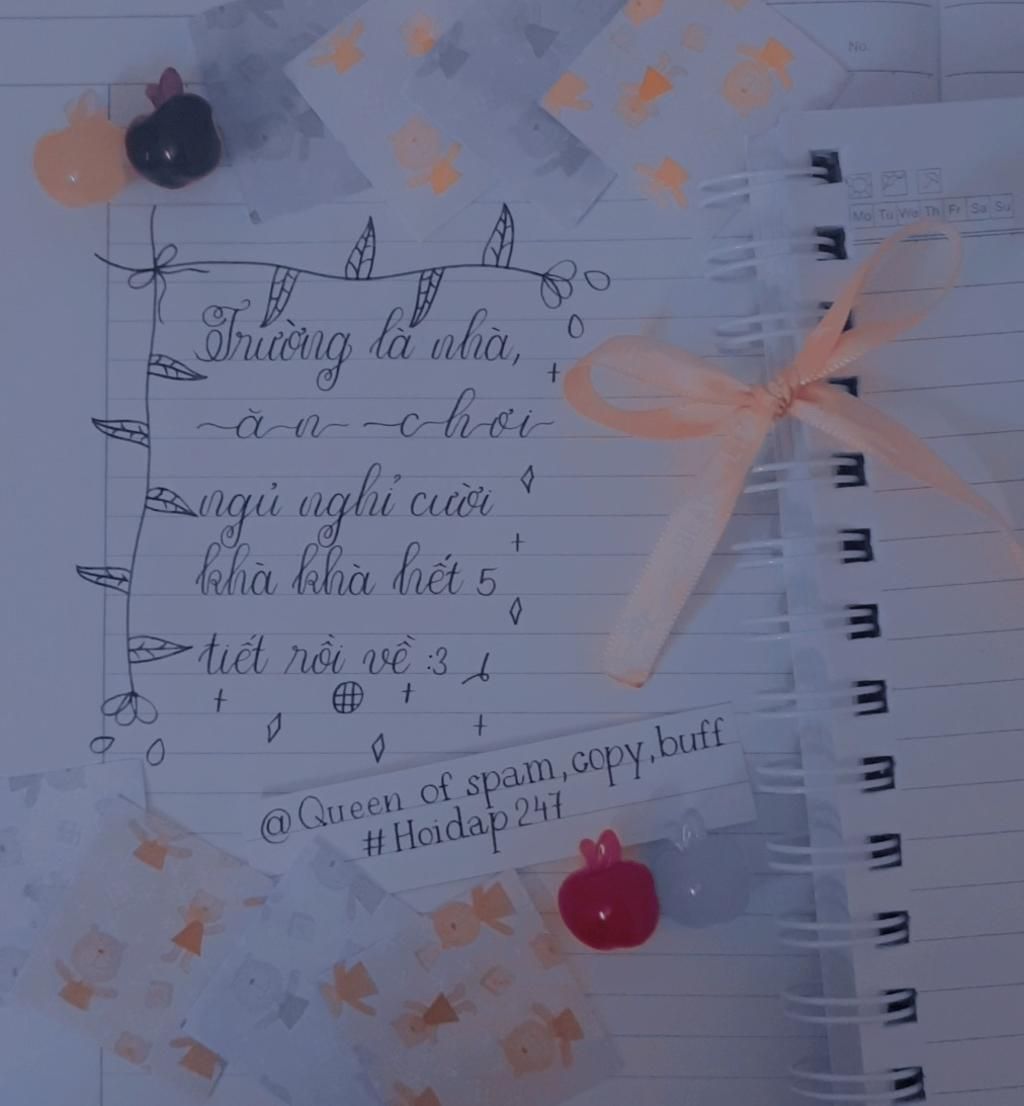 No.
Mo Tu We Th Fr Sa Su
Trường là nhà,
ăn chơi
ngủ nghỉ cười
khà khà hết 5
tiết rồi về :3
@Queen of spam,copy,buff
#Hoidap247